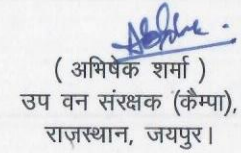 ( अभिषेक शर्मा )
उप वन संरक्षक (कैम्पा),
राजस्थान, जयपुर।